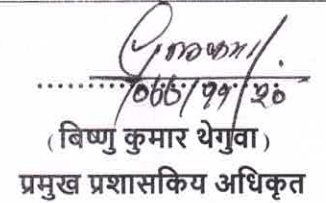 ०७७/११/२०
(बिष्णु कुमार थेगुवा)
प्रमुख प्रशासकिय अधिकृत